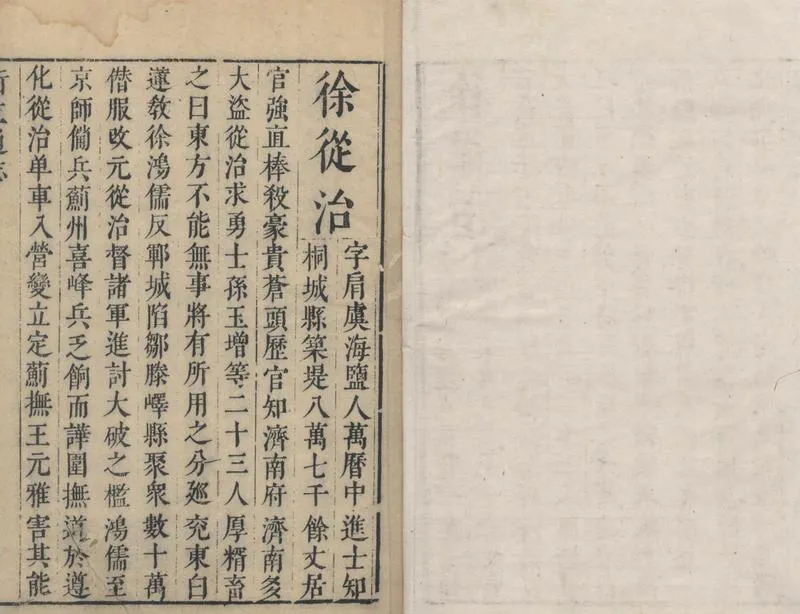 徐從治
字肩虞海鹽人萬曆中進士知
桐城縣築堤八萬七千餘丈居
官強直棒殺豪貴蒼頭歷官知濟南府濟南多
大盜從治求勇士孫玉增等二十三人厚糈畜
之曰東方不能無事將有所用之分廵兖東白
蓮教徐鴻儒反鄆城陷鄒滕嶧縣聚衆數十萬
僭服改元從治督諸軍進討大破之檻鴻儒至
京師僃兵薊州喜峰兵乏餉而譁圍撫道於遵
化從治单車入營變立定薊撫王元雅害其能